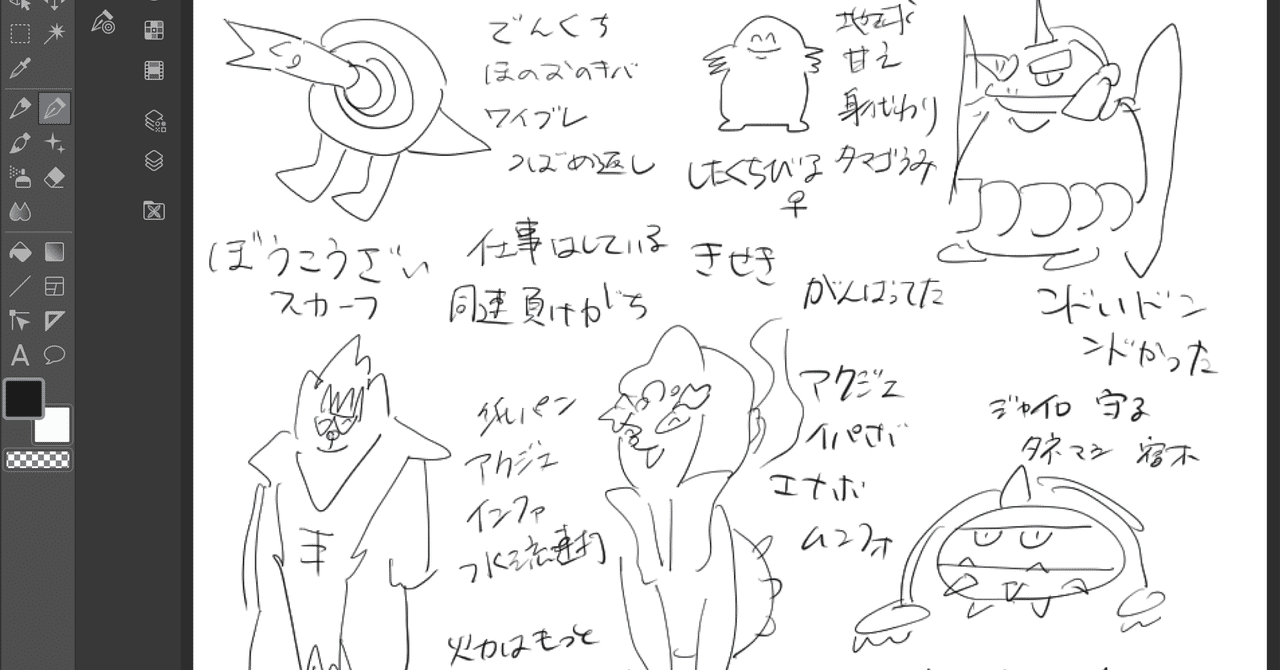 でんくち
ほのおのキバ
ワイブレ
つばめ返し
ぼうこうざい
スカーフ
地球
甘え
身代わり
タマゴうみ
したくちびる
♀
仕事はしている
同速負けがち
きせき
がんばってた
コンドいドン
ンドかった
ジャイロ 守る
タネマシ 宿木
れいパン
アクジェ
インファ
水流連打
火力はもっと
アクジェ
イバさば
エナボ
ムンフォ
A